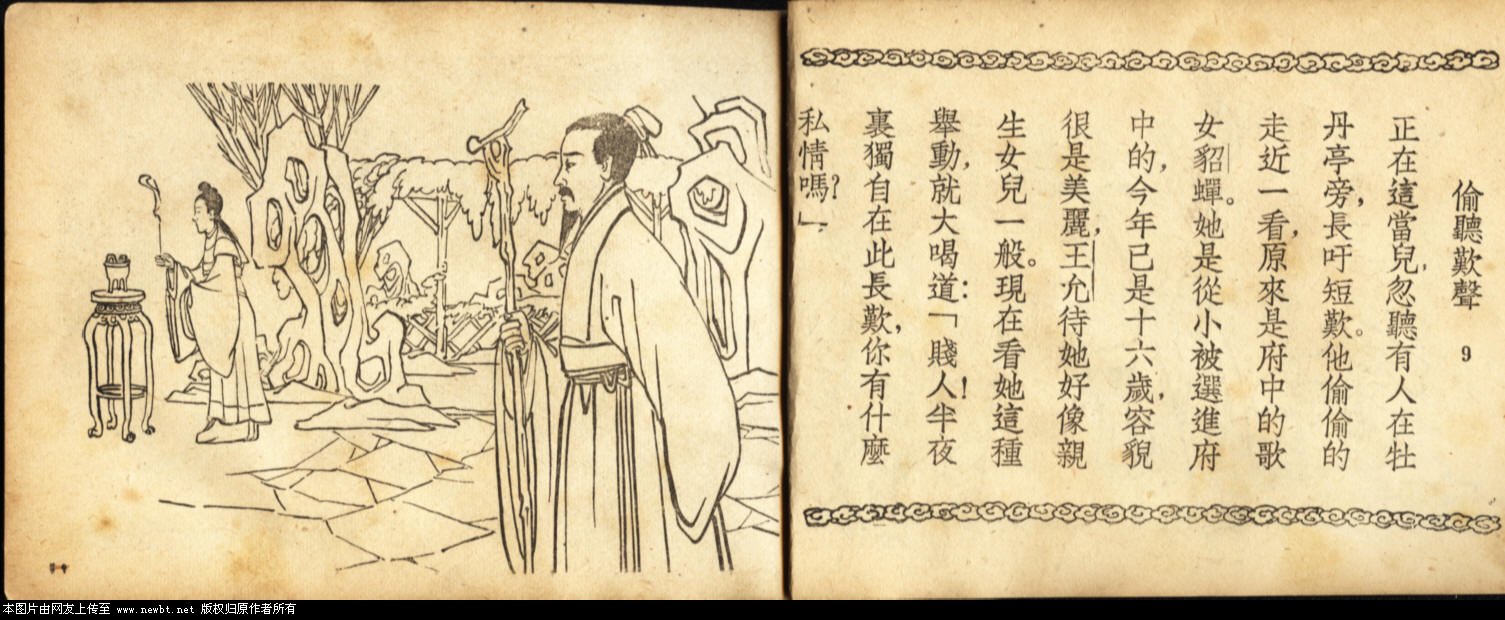 偷聽歎聲 9
正在這當兒,忽聽有人在牡
丹亭旁,長吁短歎。他偷偷的
走近一看,原來是府中的歌
女貂蟬。她是從小被選進府
中的,今年已是十六歲,容貌
很是美麗,王允待她好像親
生女兒一般。現在看她這種
舉動,就大喝道:「賤人!半夜
裏獨自在此長歎,你有什麼
私情嗎?」
本图片由网友上传至 www.newbt.net 版权归原作者所有